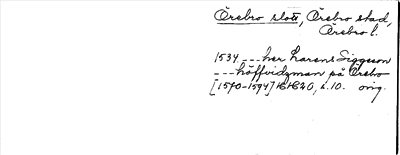 Örebro slott, Örebro stad,
Örebro l.
1534 --- her Larens Siggeson
--- höffvidzman på Örebro
[1570-1594] HH 20, s. 10. orig.